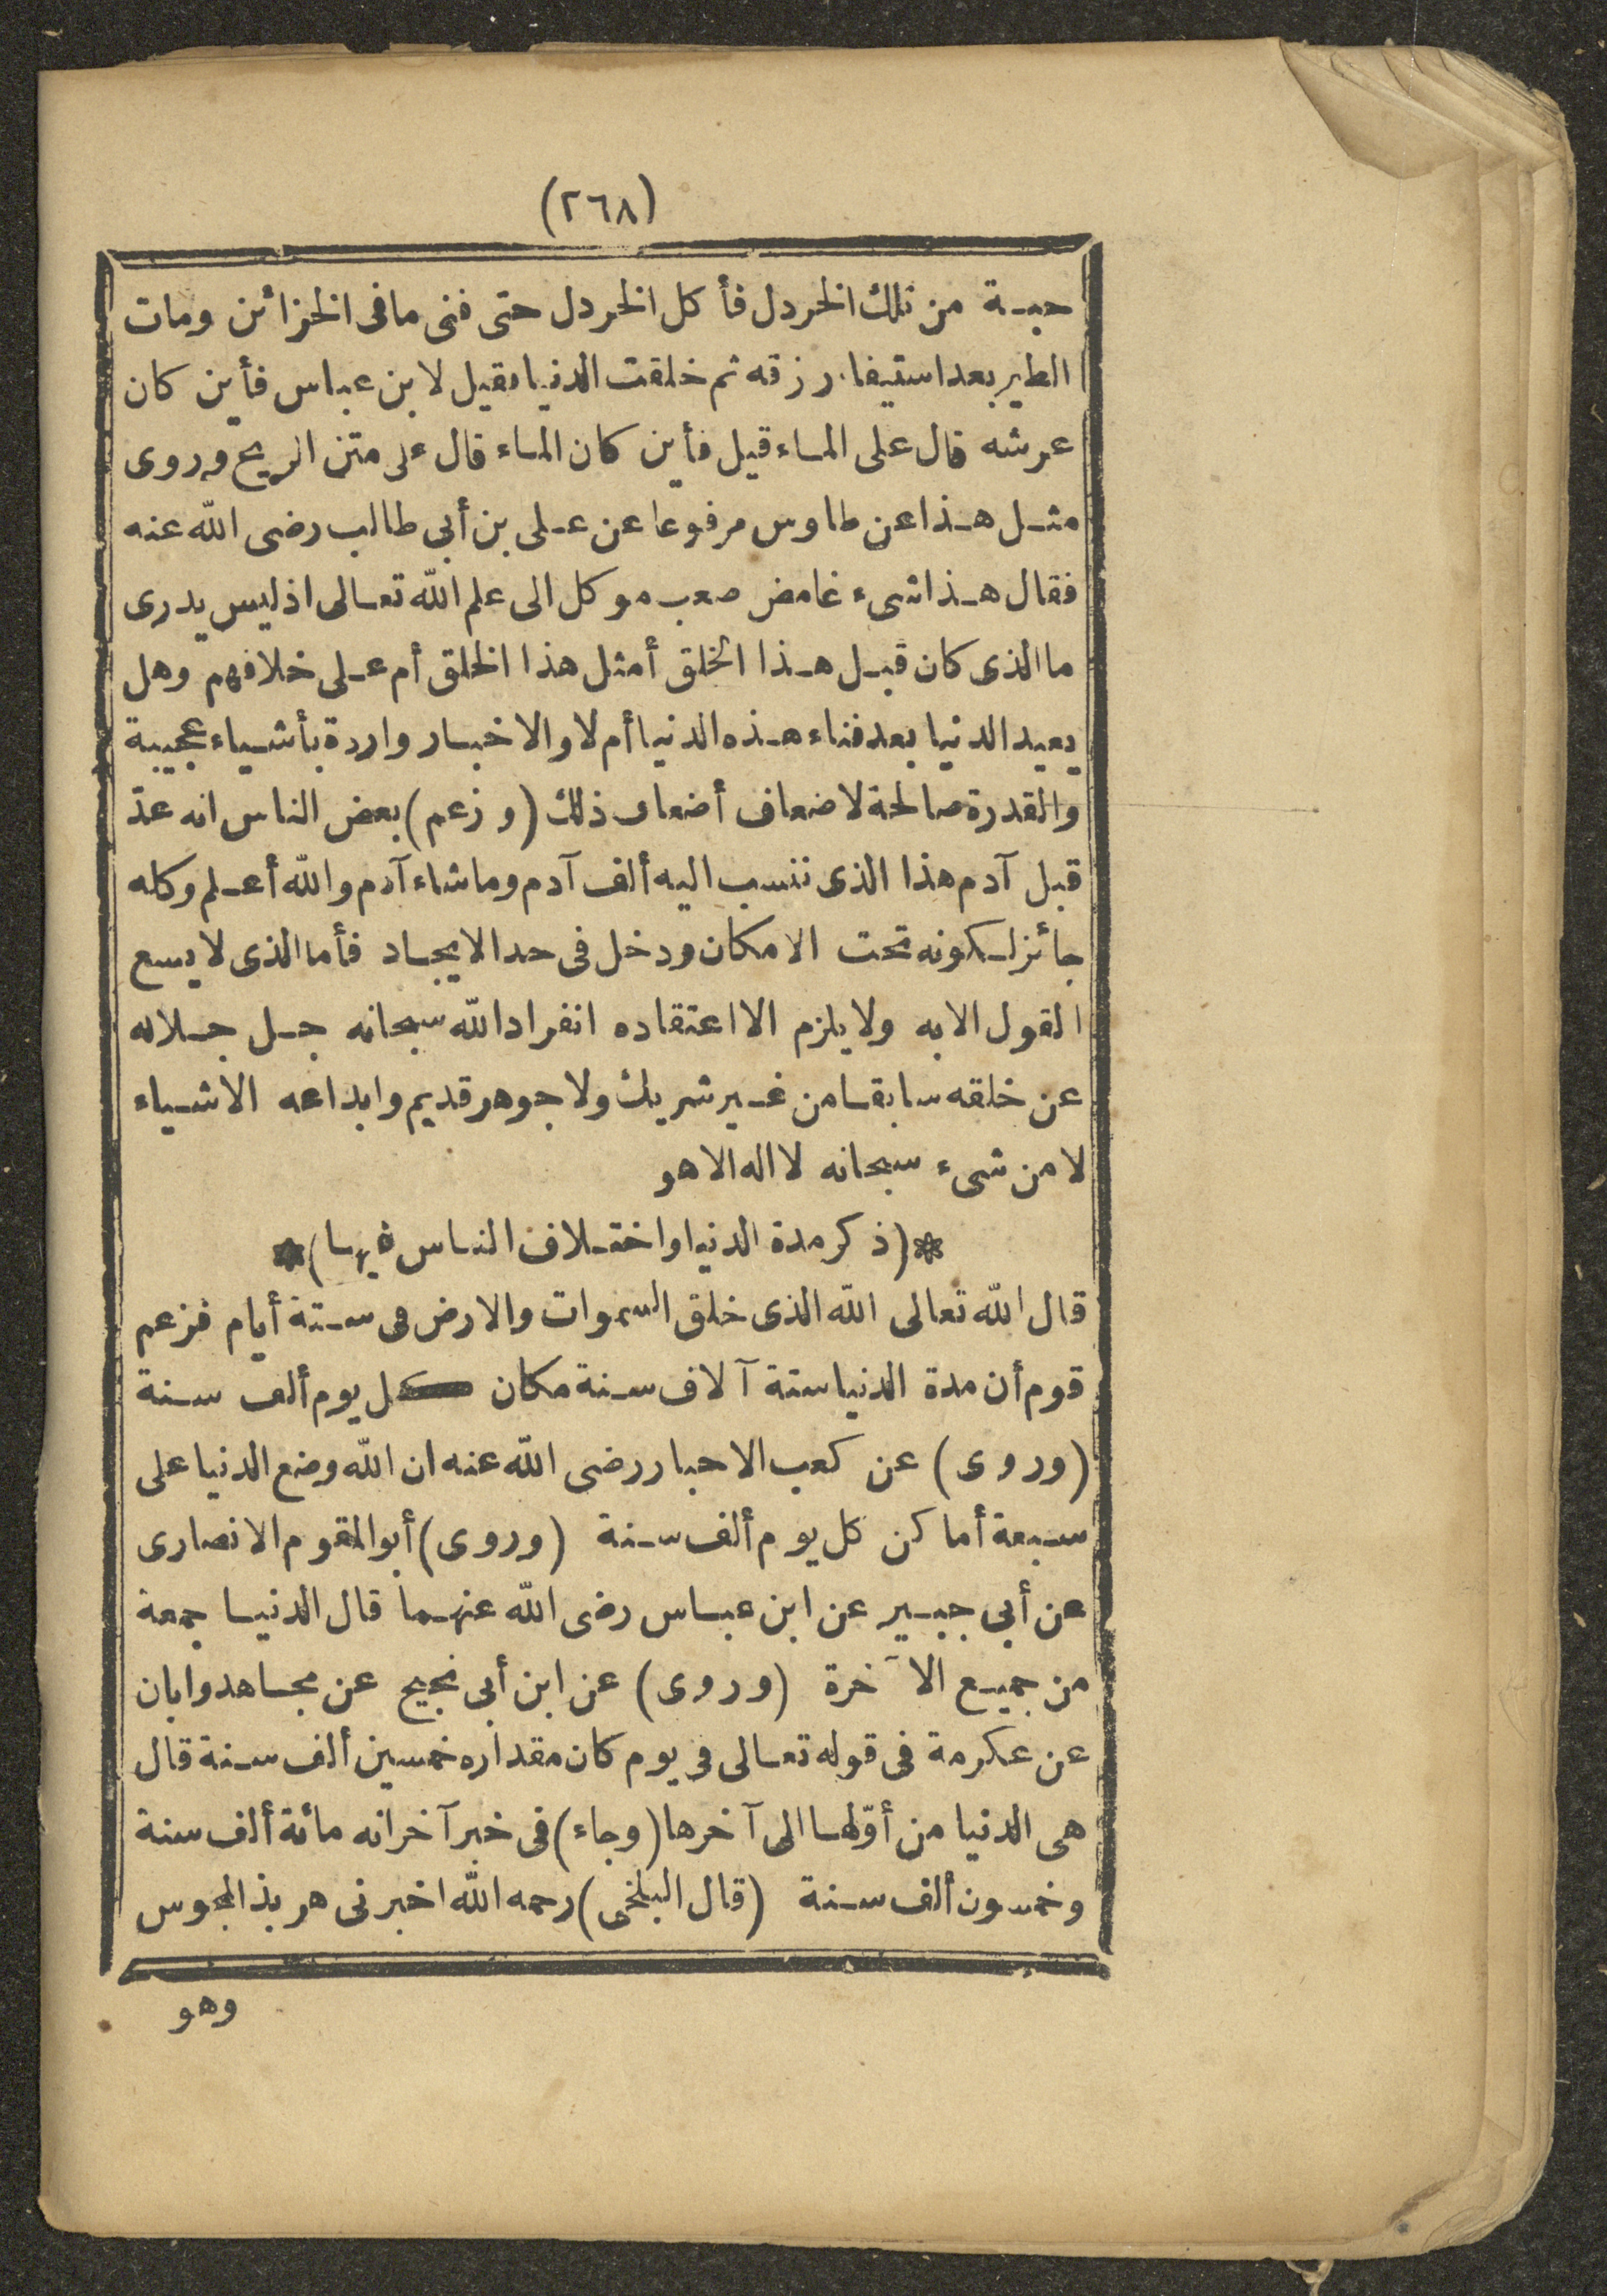 (٢٦٨)
حبة من تلك الخردل فأكل الخردل حتى فنى مافى الخزائن ومات
الطير بعد استيفاء رزقه ثم خلقت الدنيا فقيل لابن عباس فأين كان
عرشه قال على الماء قيل فأين كان الماء قال على متن الريح وروى
مثل هذا عن طاوس مرفوعا عن على بن أبى طالب رضى الله عنه
فقال هذا شىء غامض صعب موكل الى علم الله تعالى اذ ليس يدرى
ما الذى كان قبل هذا الخلق أمثل هذا الخلق أم على خلافهم وهل
يعيد الدنيا بعد فناء هذه الدنيا أم لا والاخبار واردة بأشياء عجيبة
والقدرة صالحة لاضعاف أضعاف ذلك (وزعم) بعض الناس انه عدّ
قبل آدم هذا الذى ننسب اليه ألف آدم وما شاء آدم والله أعلم وكله
جائز لكونه تحت الامكان ودخل فى حد الايجاد فأما الذى لا يسع
القول الا به ولا يلزم الا اعتقاده انفراد الله سبحانه جل جلاله
عن خلقه سابقا من غير شريك ولا جوهر قديم وابداعه الاشياء
لا من شىء سبحانه لا اله الا هو
*(ذكر مدة الدنيا واختلاف الناس فيها)*
قال الله تعالى الله الذى خلق السموات والارض فى ستة أيام فزعم
قوم أن مدة الدنيا ستة آلاف سنة مكان كل يوم ألف سنة
(وروى) عن كعب الاحبار رضى الله عنه ان الله وضع الدنيا على
سبعة أماكن كل يوم ألف سنة (وروى) أبو المقوم الانصارى
عن أبى جبير عن ابن عباس رضى الله عنهما قال الدنيا جمعة
من جميع الآخرة (وروى) عن ابن أبى نجيح عن مجاهد وابان
عن عكرمة فى قوله تعالى فى يوم كان مقداره خمسين ألف سنة قال
هى الدنيا من أوّلها الى آخرها (وجاء) فى خبر آخر انه مائة ألف سنة
وخمسون ألف سنة (قال البلخى) رحمه الله اخبرنى هربذ المجوس
وهو